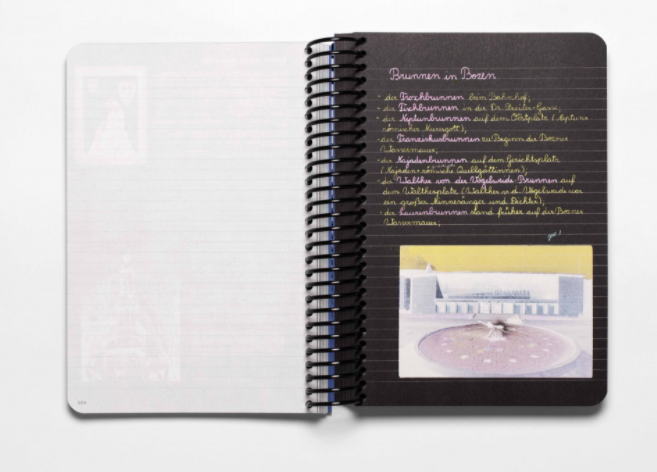 Brunnen in Bozen
- der Froschbrunnen beim Bahnhof;
- der Fischbrunnen in der Dr. Streiter-Gasse;
- der Neptunbrunnen auf dem Obstplatz (Neptun=
römischer Meeresgott);
- der Franziskusbrunnen zu Beginn der Bozner
Wassermauer;
- der Najadenbrunnen auf dem Gerichtsplatz
(Najaden= römische Quellgöttinnen);
- der Walther von der Vogelweide-Brunnen auf
dem Waltherplatz (Walther v. d. Vogelweide war
ein großer Minnesänger und Dichter);
- der Laurinbrunnen stand früher auf der Bozner
Wassermauer;
gut!